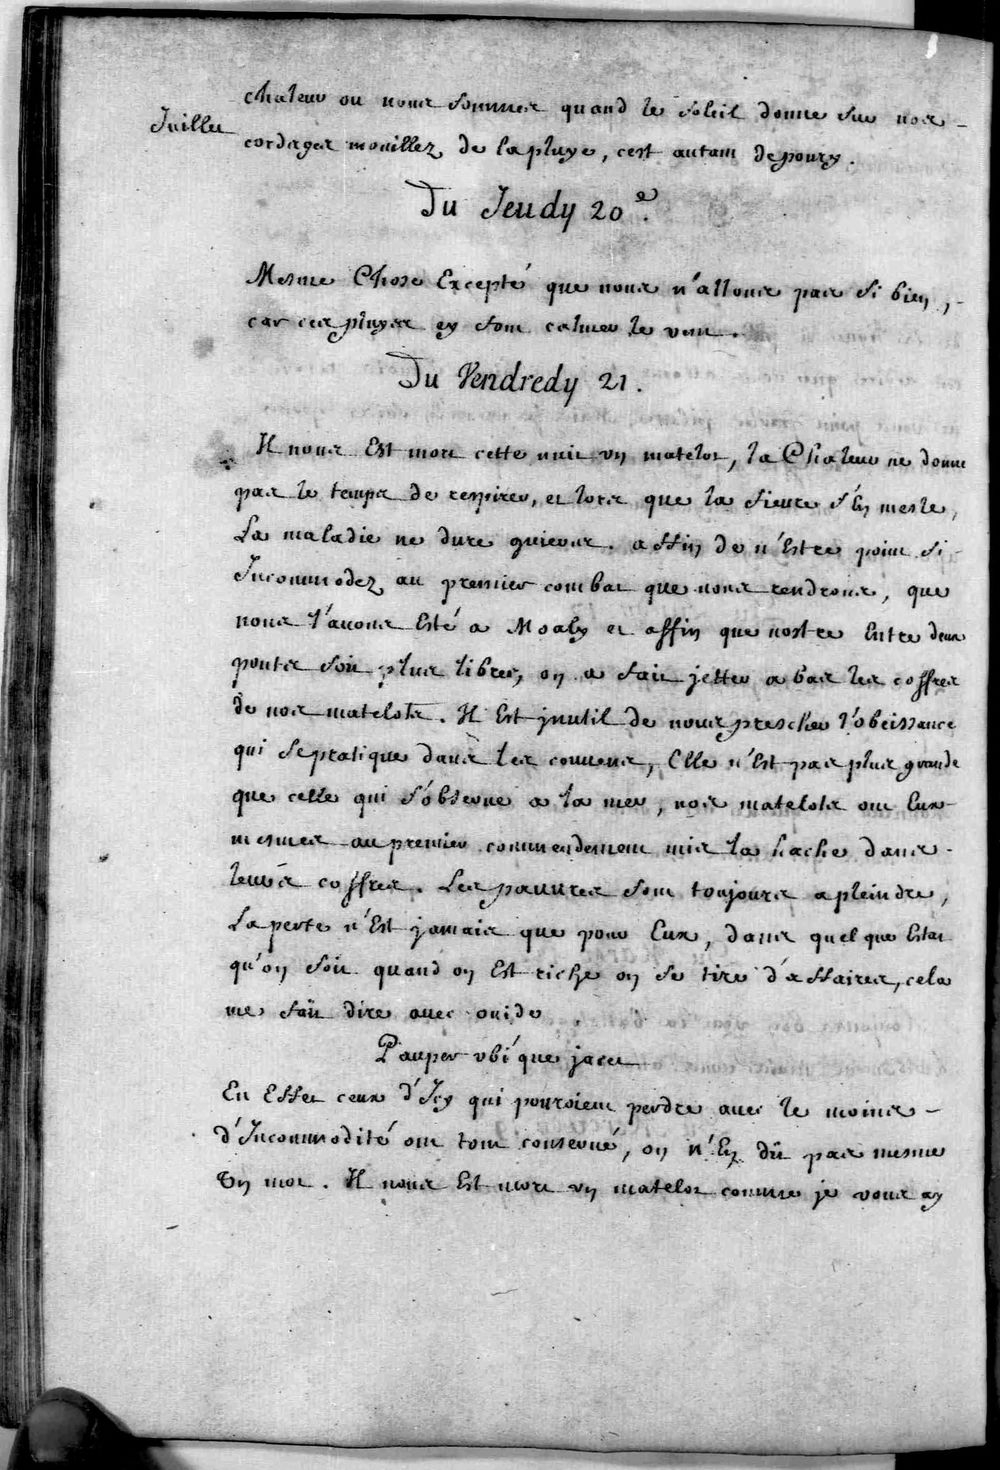 Juillet
chaleur ou nous sommes quand le soleil donne sur nos
cordages mouillez de la pluye, cest autant de poury.
Du Jeudy 20e.
Mesme Chose Excepté que nous n'allons pas si bien,
car ces pluyes ey font calmer le vent.
Du Vendredy 21.
Il nous Est mort cette nuit vn matelot, la Chaleur ne donne
pas le temps de respirer, et lors que la fievre s'En mesle,
La maladie ne dure guieres. affin de n'Estre point si
Incommodez au premier combat que nous rendrons, que
nous l'auons Esté a Moaly et affin que nostre Entre deux
ponts soit plus libres, on a fait jetter a bas les coffres
de nos matelots. Il Est jnutil de nous prescher l'obeissance
qui se pratique dans les couuens, Elle n'Est pas plus grande
que celle qui s'obserue a la mer, nos matelots ont Eux-
mesmes au premier commendement mis la hache dans
leurs coffres. Les pauures sont toujours a pleindre,
La perte n'Est jamais que pour Eux, dans quel que Estat
qu'on soit quand on Est riche on se tire d'affaires, cela
me fait dire auec ouide
Pauper vbi que jacet
En Effet ceux d'Icy qui pouroient perdre auec le moins
d'Incommodité ont tout conserué, on n'En dit pas mesme
Vn mot. Il nous Est mort vn matelot comme je vous ay